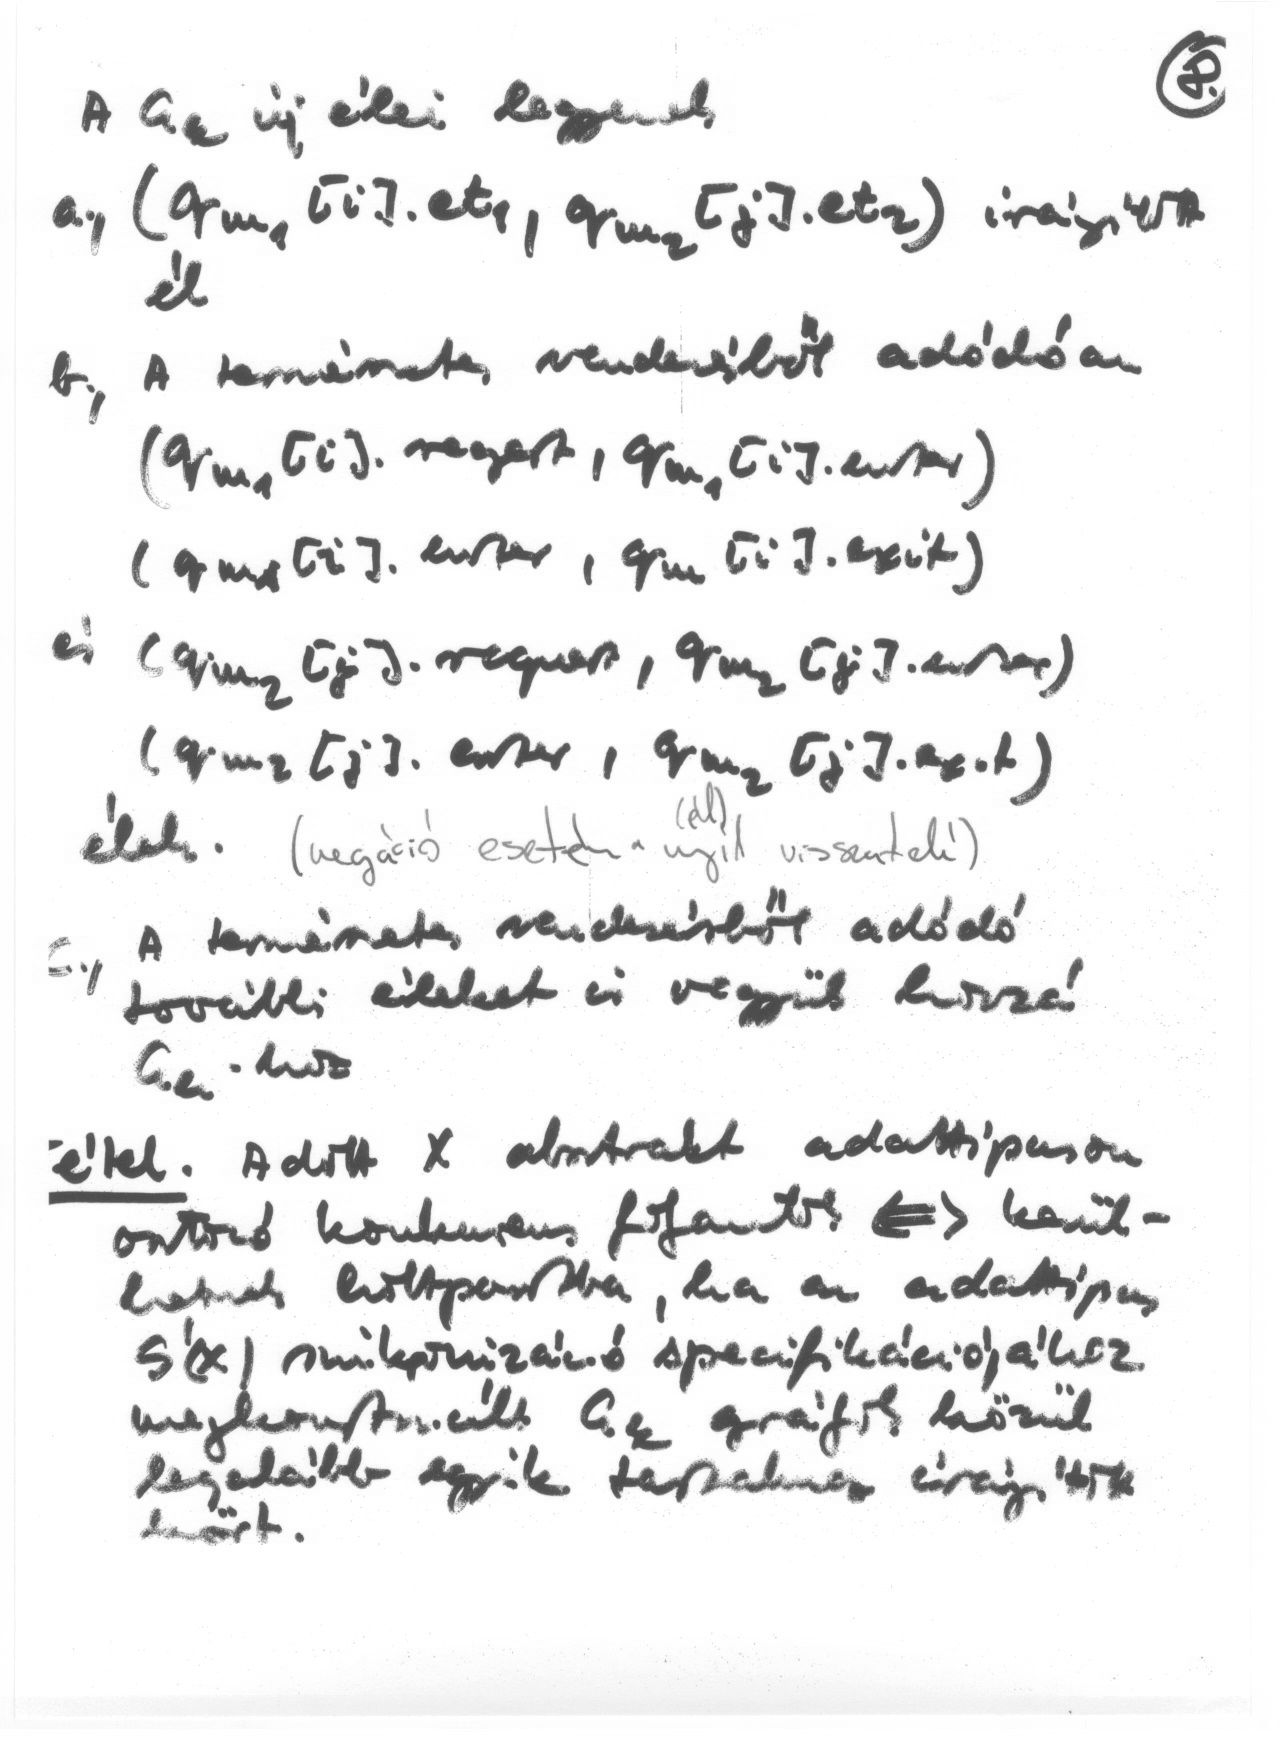 8.
A Gk új élei legyenek
a., (qm1[i].et1, qm2[j].et2) irányított
él
b., A természetes rendezésből adódóan
(qm1[i].request, qm1[i].enter)
(qm1[i].enter, qm[i].exit)
és (qm2[j].request, qm2[j].enter)
(qm2[j].enter, qm2[j].exit)
élek. (negáció esetén a nyíl (él) visszafelé)
c., A természetes rendezésből adódó
további éleket is vegyük hozzá
Gk-hoz
étel. Adott X absztrakt adattípuson
osztozó konkurens folyamatok <=> kerül-
hetnek holtpontba, ha az adattípus
S(X) szinkronizáció specifikációjához
megkonstruált Gk gráfok közül
legalább egyik tartalmaz irányított
kört.